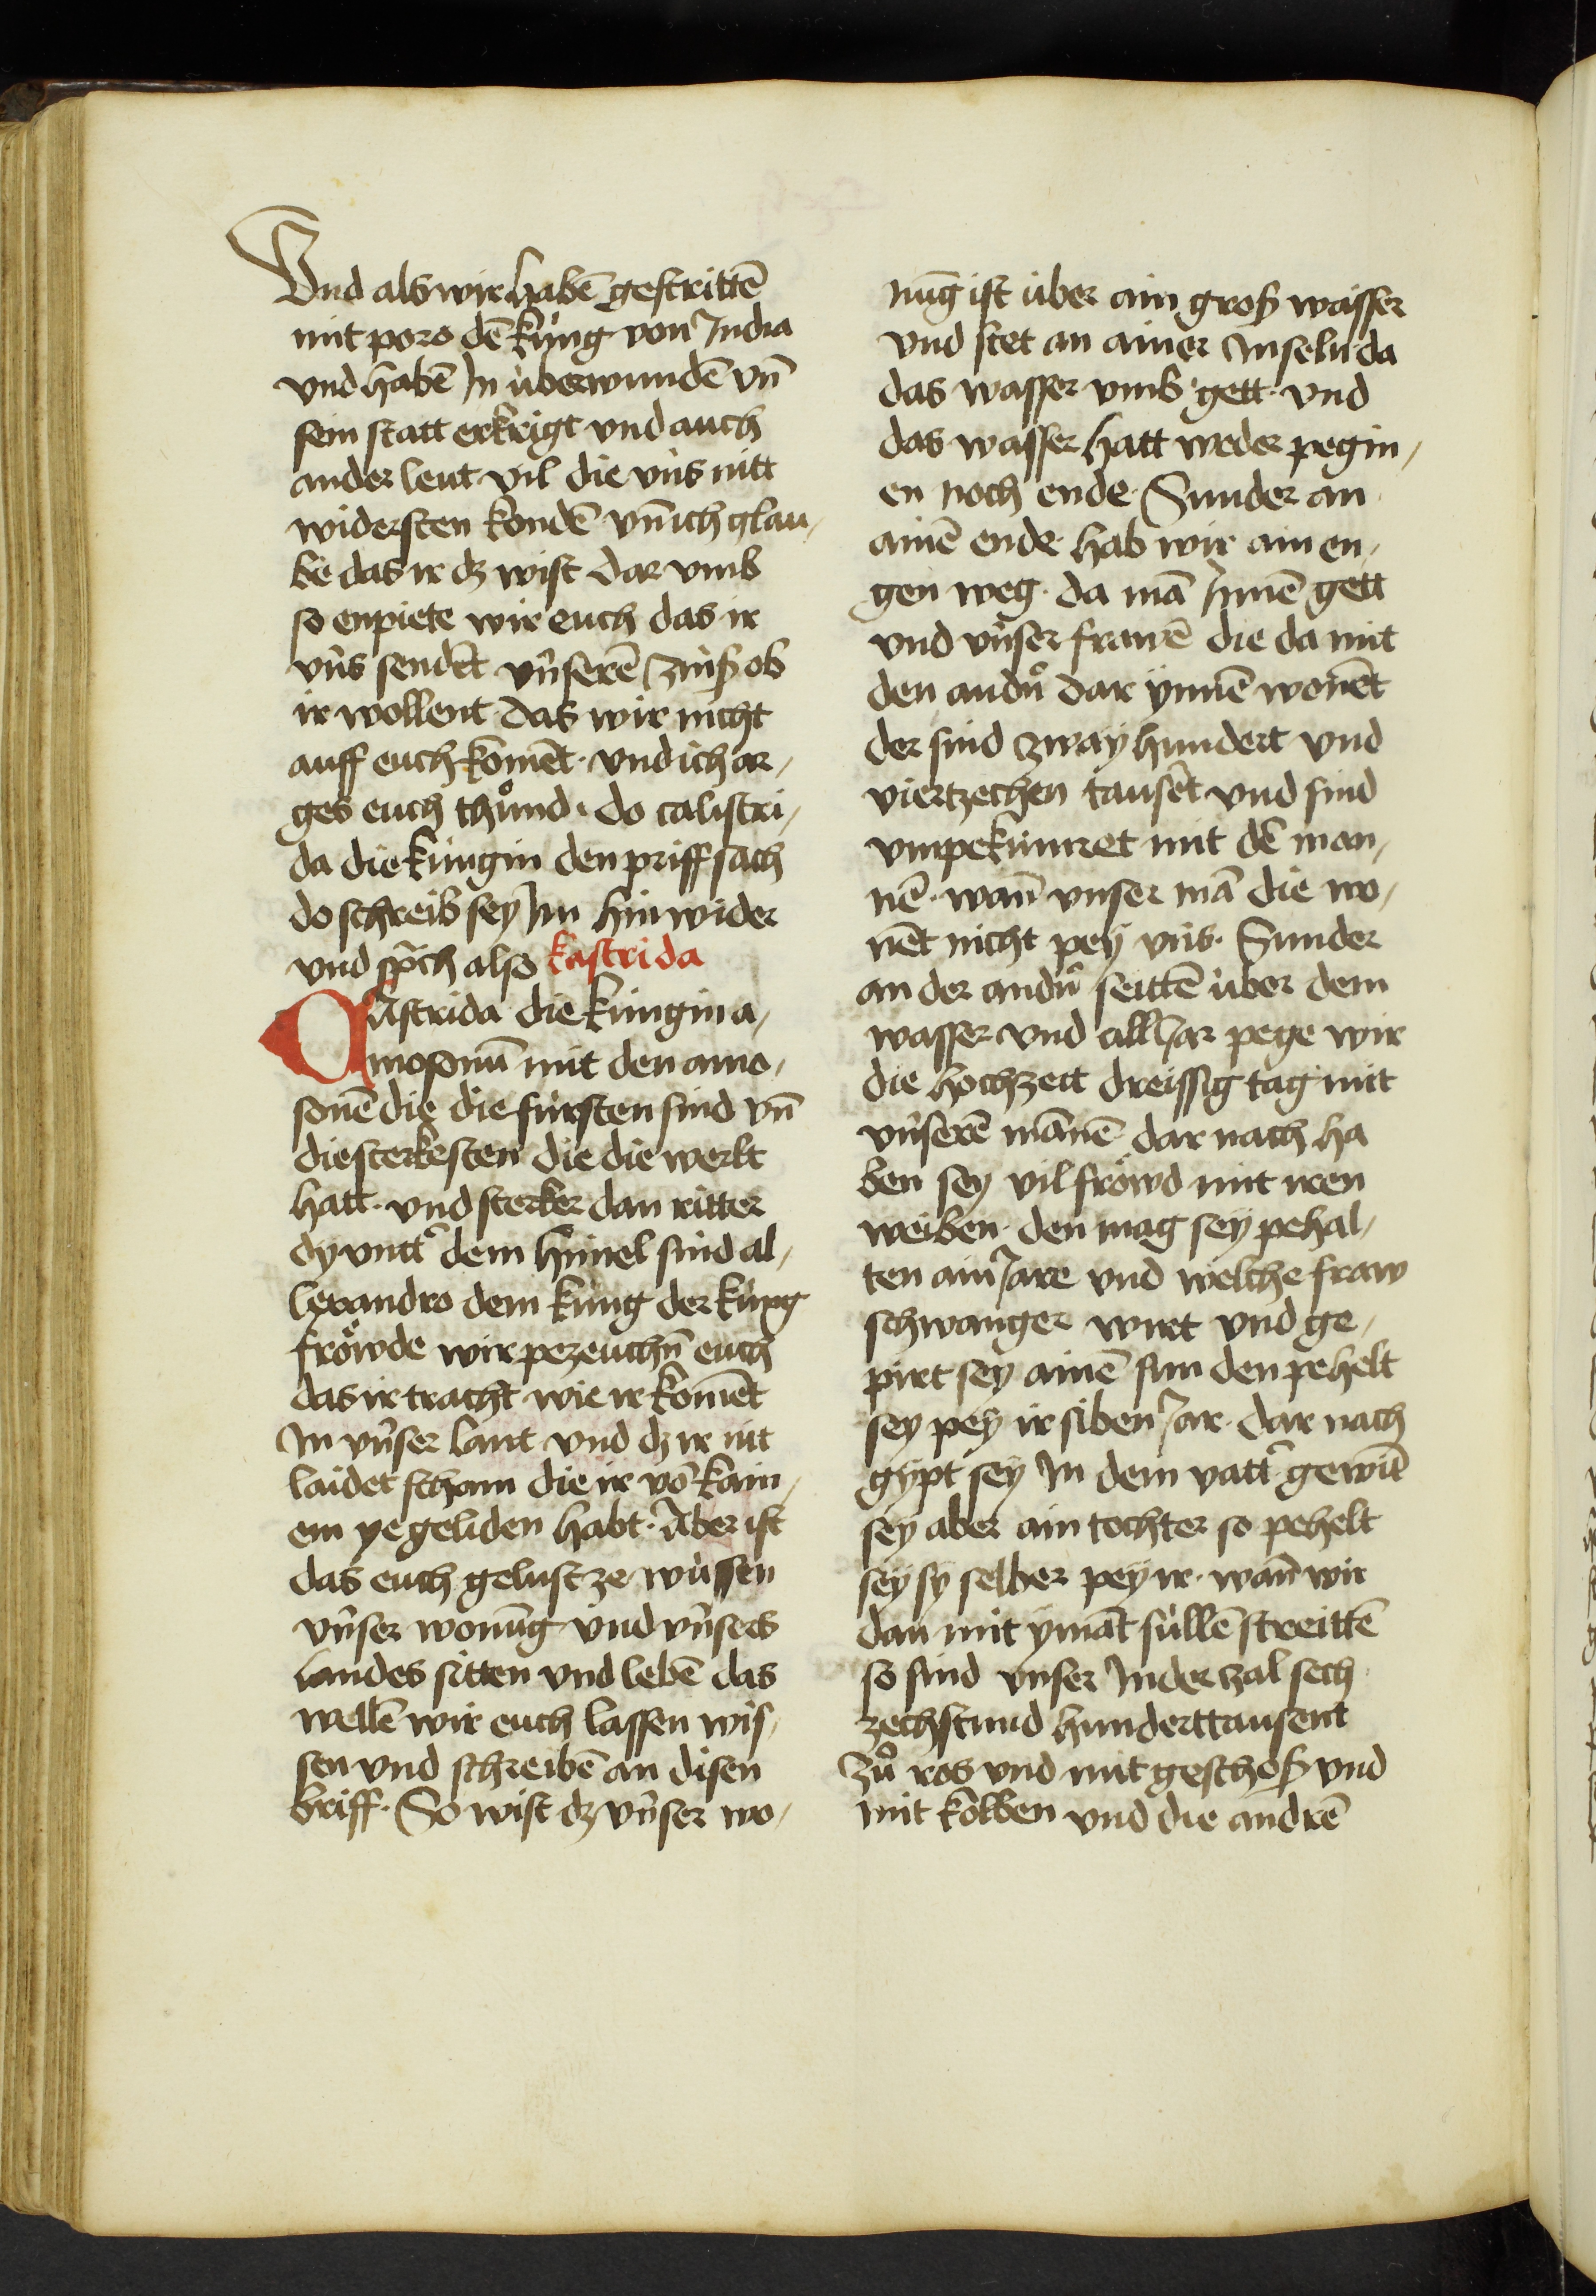 Vnd als wir habē gestrittē
mit poro dē kúng von India
vnd habē In überwundē vn̄
sein statt erkrigt vnd auch
ander leut vil die vns nitt
widersten kondē vn̄ ich glau⸗
be das ir dz wist dar vmb
so enpiete wir euch das ir
vns sendēt vnserē zinß ob
ir wollent das wir nicht
auff euch komēt · vnd ich ar⸗
ges euch thůnd · do calistri⸗
da die kúngin den priff sach
do schreib sey Im hin wider
vnd sp̄ch also kastrida
CAstrida die kúngin a⸗
mosonū mit den amo⸗
sonē die die fürsten sind vn̄
die sterkesten die die werlt
hatt · vnd sterker dan ritter
dy vntt̄ dem himel sind al⸗
lexandro dem kúng der kúng
fröwde wir pezeuchn̄ euch
das ir tracht wie ir komēt
In vnser lant vnd dz ir nit
laidet scham die ir vō kain⸗
em ye geliden habt · Aber ist
das euch gelust ze wüssen
vnser wonūg vnd vnsers
landes sitten vnd lebē das
wellē wir euch lassen wis⸗
sen vnd schreibē an disen
briff · So wist dz vnser wo⸗
nūg ist über ain groß wasser
vnd stet an ainer Inseln da
das wasser vmb gett · vnd
das wasser hatt weder pegin⸗
en noch ende · Sunder an
ainē ende hab wir ain en⸗
gen weg · da mā Innē gett
vnd vnser frawē die da mit
den andn̄ dar ynnē wonēt
der sind zway hundert vnd
viertzechen tausēt vnd sind
vnpekúmret mit dē man⸗
nē · wan̄ vnser mā die wo⸗
nēt nicht pey vns · Sunder
an der andn̄ seittē über dem
wasser vnd all Jar pege wir
die hochzeit dreissig tag mit
vnserē mānē dar nach ha
ben sey vil fröwd mit iren
weiben · den mag sey pehal⸗
ten ain Jare vnd welche fraw
schwanger wirt vnd ge⸗
pirt sey ainē sun den pehelt
sey pey ir siben Jar · dar nach
gypt sey In dem vatt̄ gewīt
sey aber ain tochter so pehelt
sey sy selber pey ir · wan̄ wir
dan mit ymāt süllē streittē
so sind vnser In der zal sech
zechstund hunderttausent
zů ros vnd mit geschoß vnd
mit kolben vnd die andrē